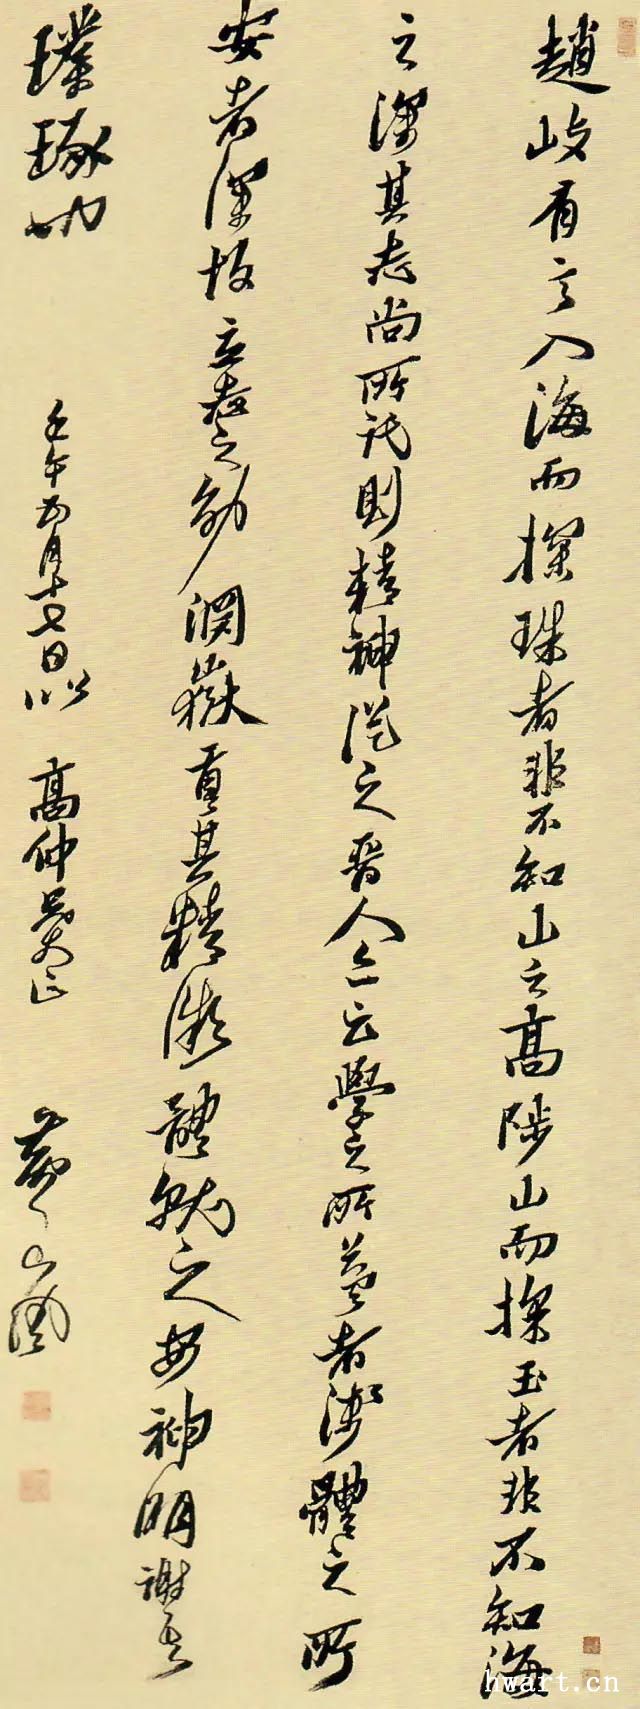 趙岐有言入海而探珠者非不知山之高陟山而探玉者非不知海
之深其志尚所託則精神從之晉人亦云學之所益者淺體之所
安者深故立者之勤淵嶽貢其精微體就之妙神明謝其
璞琢功
壬午五月十七日以
高仲兄大正
黃
hwart.cn